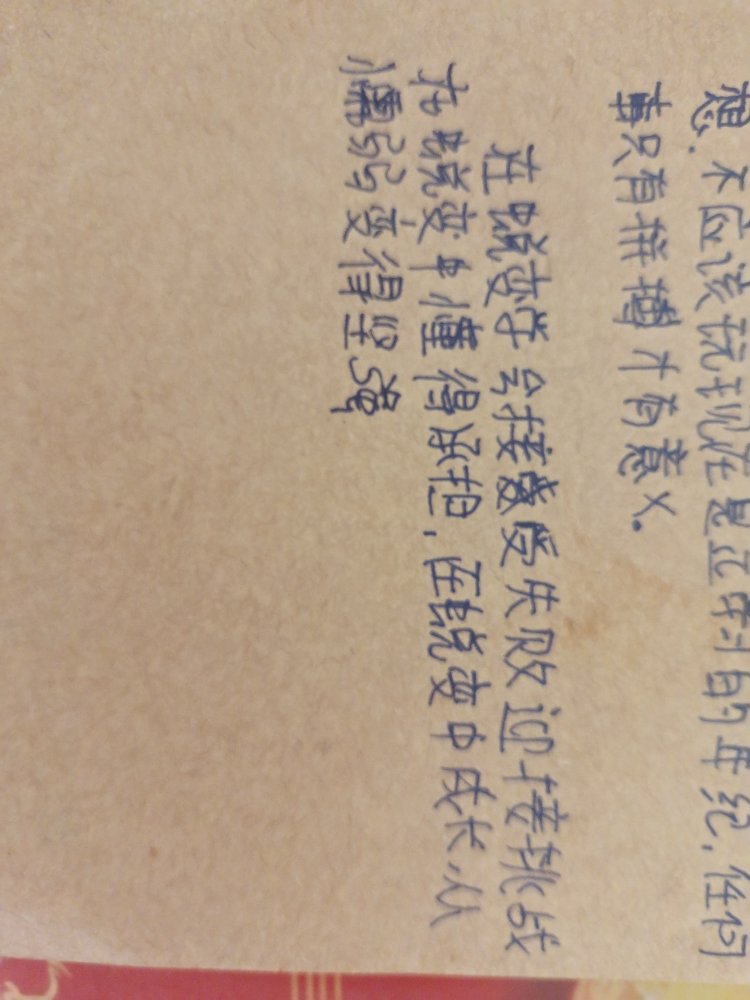 想.不应该玩现在是正奋斗的年纪,任何
事只有拼搏才有意义.
在蜕变学会接受失败迎接挑战
在蜕变中懂得承担,在蜕变中成长,从
懦弱变得坚强